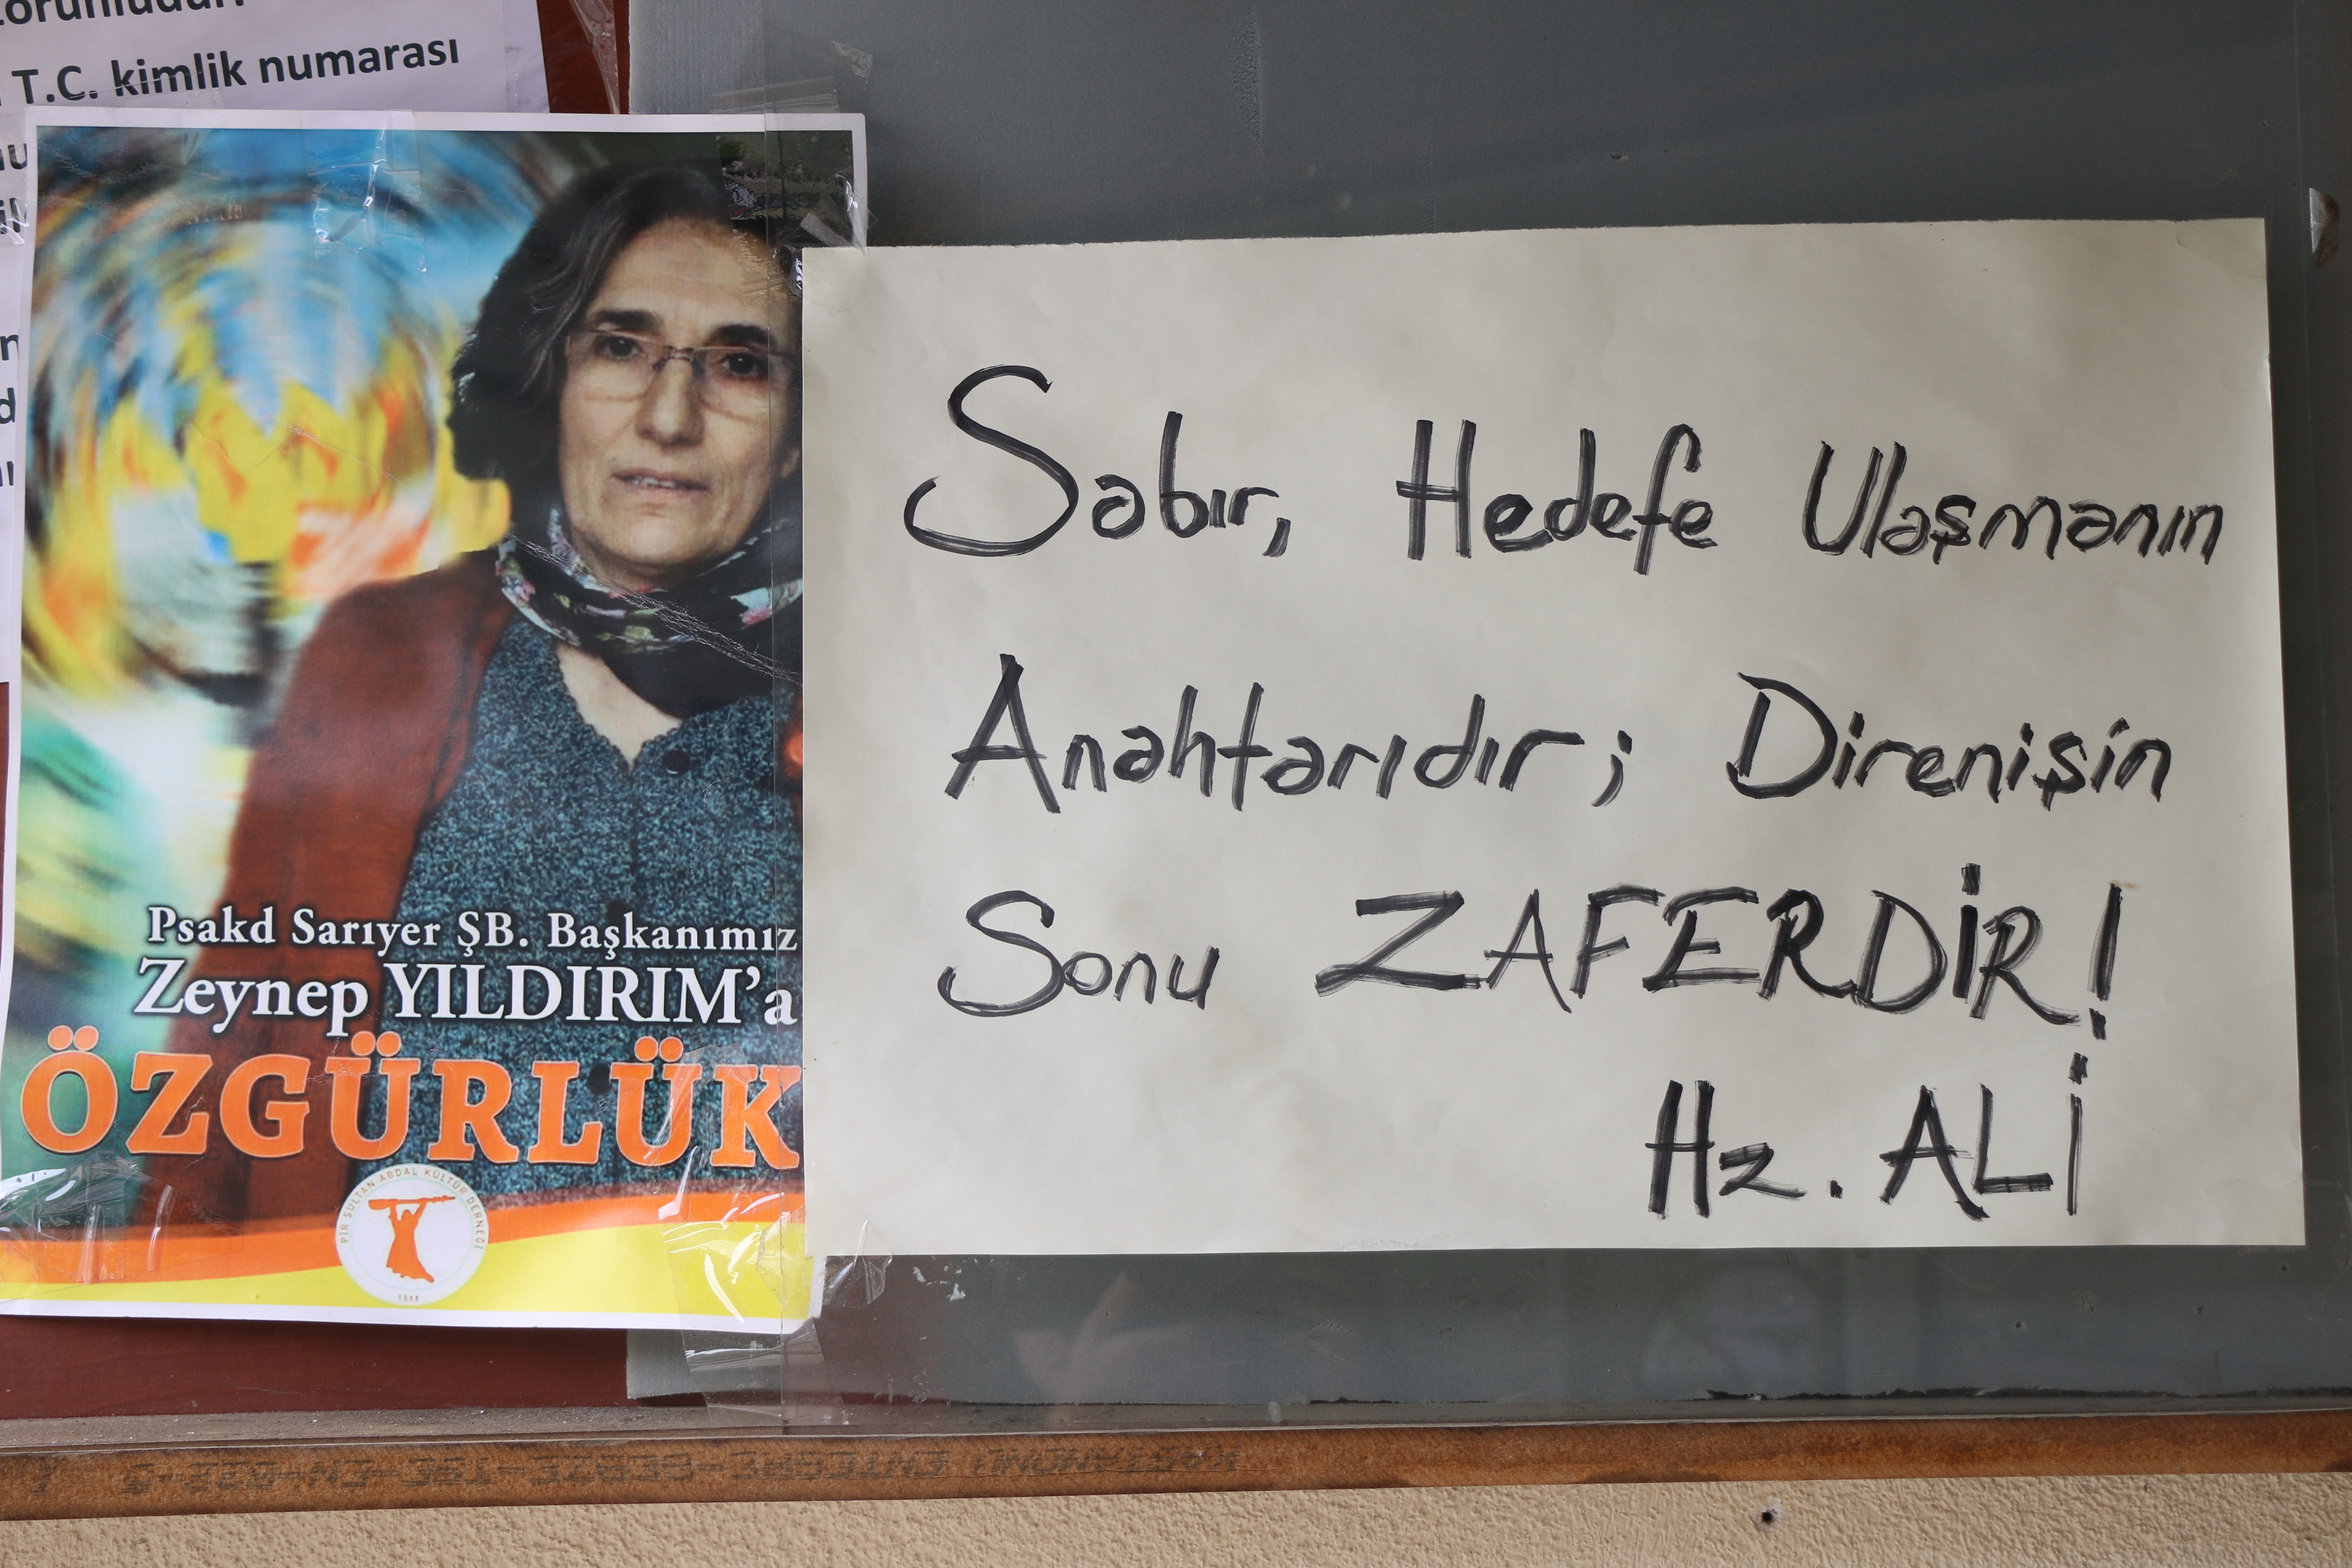 T.C. kimlik numarası
Psakd Sarıyer ŞB. Başkanımız
Zeynep YILDIRIM'a
ÖZGÜRLÜK
PİR SULTAN ABDAL KÜLTÜR DERNEĞİ
Sabır, Hedefe Ulaşmanın
Anahtarıdır; Direnişin
Sonu ZAFERDİR!
Hz. ALİ